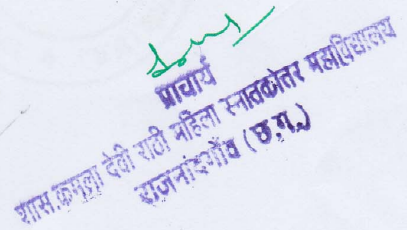 प्राचार्य
शास कमला देवी राठी महिला स्नातकोतर महाविद्यालय
राजनांदगाँव (छ.ग.)